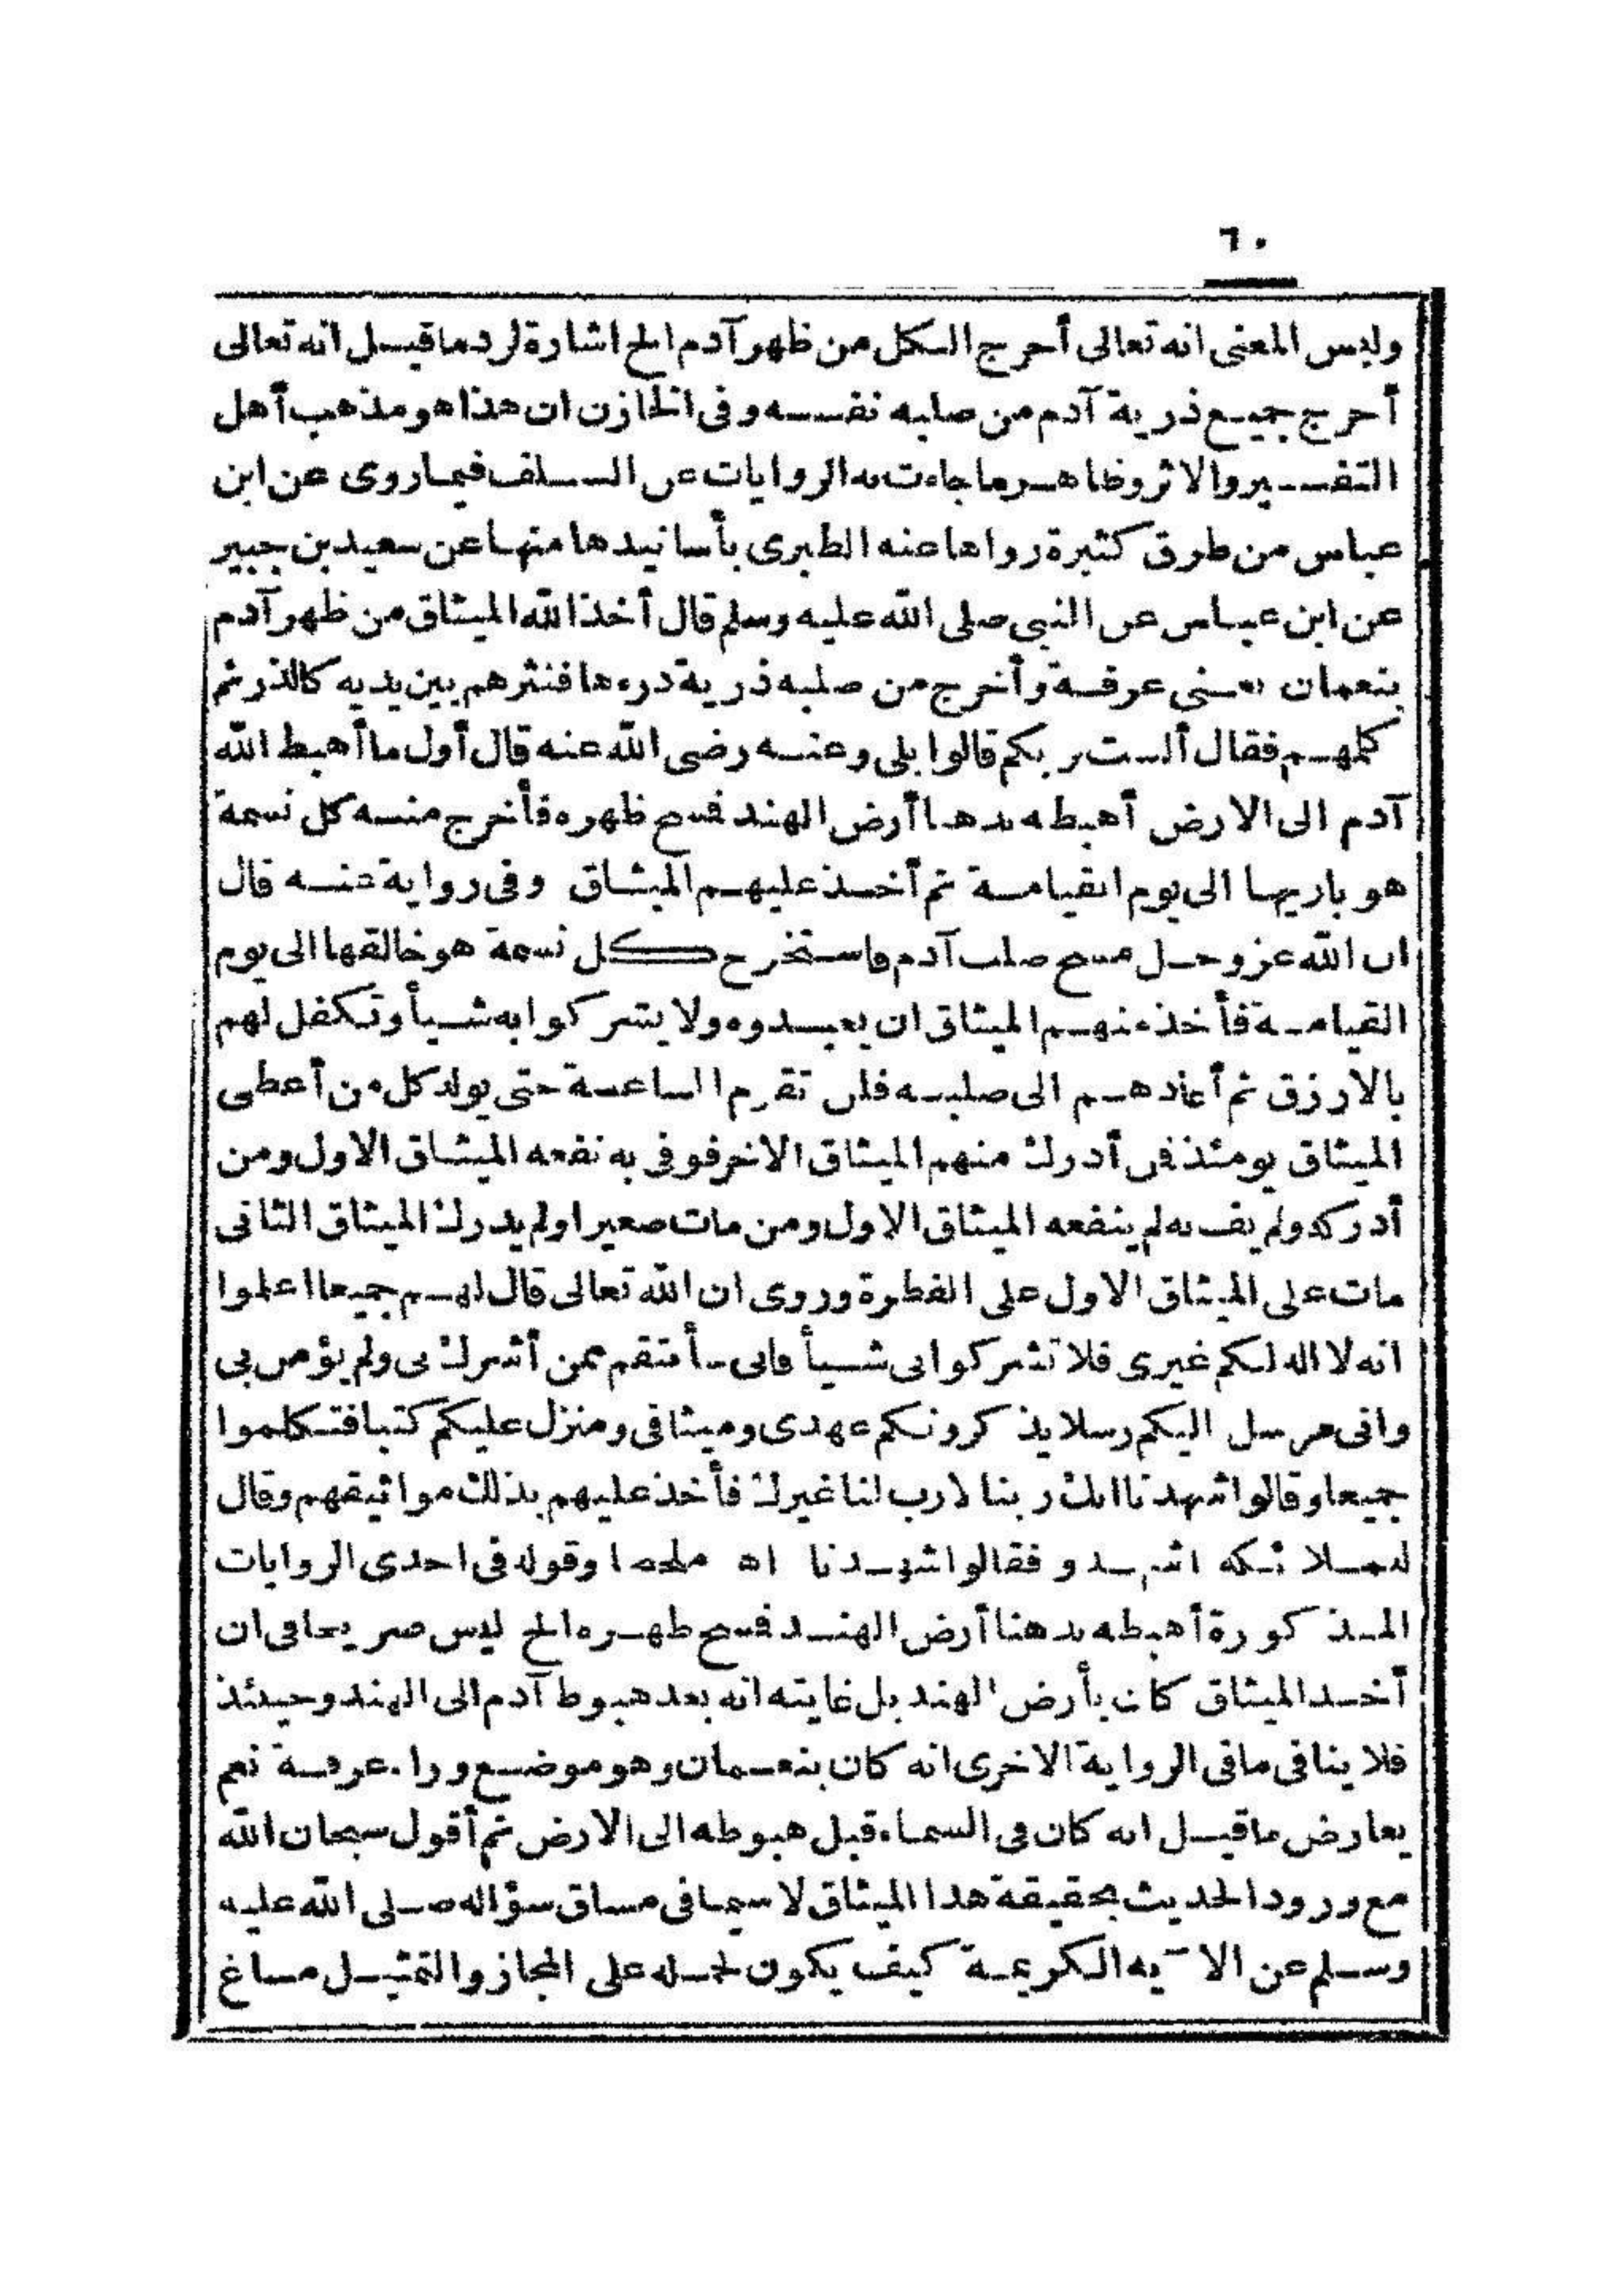 ٦٠
وليس المعنى انه تعالى أخرج الكل من ظهر آدم الخ اشارة لرد ما قيل انه تعالى
أخرج جميع ذرية آدم من صلبه نفسه وفى الخازن ان هذا هو مذهب أهل
التفسير والاثر وظاهر ما جاءت به الروايات عن السلف فيما روى عن ابن
عباس من طرق كثيرة رواها عنه الطبرى بأسانيدها منها عن سعيد بن جبير
عن ابن عباس عن النبى صلى الله عليه وسلم قال أخذ الله الميثاق من ظهر آدم
بنعمان يعنى عرفة وأخرج من صلبه ذرية ذرءها فنثرهم بين يديه كالذر ثم
كلهم فقال ألست بربكم قالوا بلى وعنه رضى الله عنه قال أول ما أهبط الله
آدم الى الارض أهبطه بدهنا أرض الهند فمسح ظهره فأخرج منه كل نسمة
هو باريها الى يوم القيامة ثم أخذ عليهم الميثاق وفى رواية عنه قال
ان الله عز وجل مسح صلب آدم فاستخرج كل نسمة هو خالقها الى يوم
القيامة فأخذ منهم الميثاق ان يعبدوه ولا يشركوا به شيأ وتكفل لهم
بالارزق ثم أعادهم الى صلبه فلن تقوم الساعة حتى يولد كل من أعطى
الميثاق يومئذ فمن أدرك منهم الميثاق الاخر فوفى به نفعه الميثاق الاول ومن
أدركه ولم يف به لم ينفعه الميثاق الاول ومن مات صغيرا ولم يدرك الميثاق الثانى
مات على الميثاق الاول على الفطرة وروى ان الله تعالى قال لهم جميعا اعلموا
انه لا اله لكم غيرى فلا تشركوا بى شيأ فانى سأنتقم ممن أشرك بى ولم يؤمن بى
وانى مرسل اليكم رسلا يذكرونكم عهدى وميثاقى ومنزل عليكم كتبا فتكلموا
جميعا وقالوا شهدنا انك ربنا لا رب لنا غيرك فأخذ عليهم بذلك مواثيقهم وقال
للملائكه اشهدو فقالوا شهدنا اه ملخصا وقوله فى احدى الروايات
المذكورة أهبطه بدهنا أرض الهند فمسح ظهره الخ ليس صريحا فى ان
أخذ الميثاق كان بأرض الهند بل غايته انه بعد هبوط آدم الى الهند وحينئذ
فلا ينافى ما فى الرواية الاخرى انه كان بنعمان وهو موضع وراء عرفة نعم
يعارض ما قيل انه كان فى السماء قبل هبوطه الى الارض ثم أقول سبحان الله
مع ورود الحديث بحقيقة هذا الميثاق لا سيما فى مساق سؤاله صلى الله عليه
وسلم عن الآيه الكريمة كيف يكون لحمله على المجاز والتمثيل مساغ